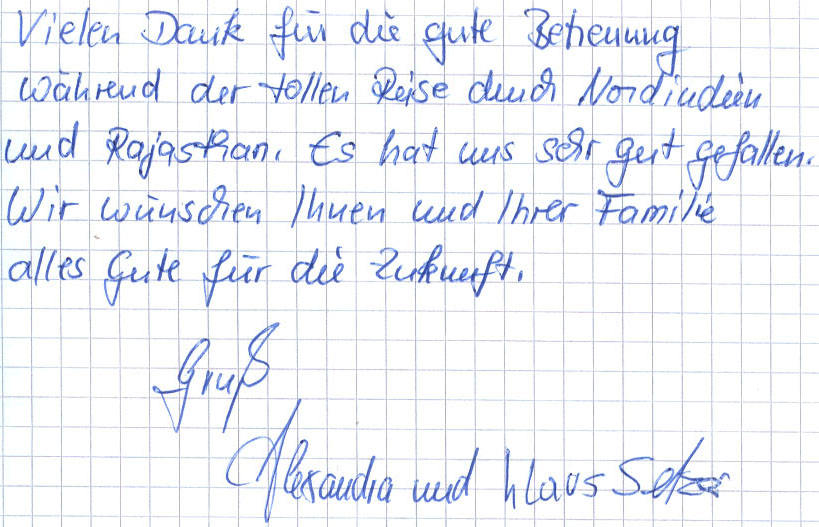 Vielen Dank für die gute Betreuung
während der tollen Reise durch Nordindien
und Rajasthan. Es hat uns sehr gut gefallen.
Wir wünschen Ihnen und Ihrer Familie
alles Gute für die Zukunft.
Gruß
Alexandra und Klaus